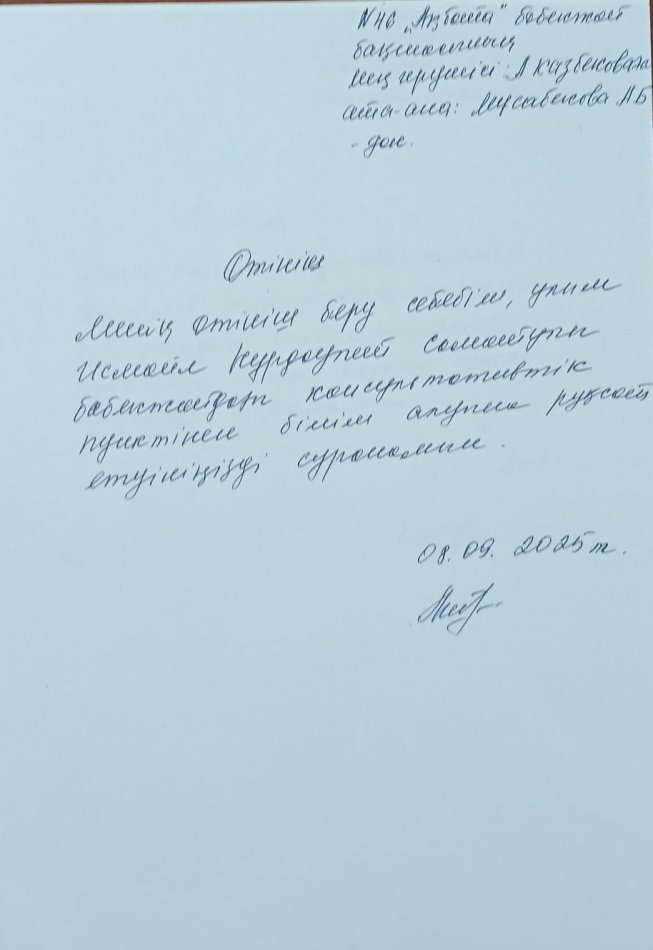 N46 „Ақбота" бөбекжай
бақшасының
меңгерушісі: А
ата-ана: Мусабекова А.Б
- дан.
Өтініш
Менің өтініш беру себебім, ұлым
Исмаил сізден
бөбекжайдан консультативтік
пунктінен білім алуына рұқсат
етуіңізді сұранамын.
08.09. 2025 т.